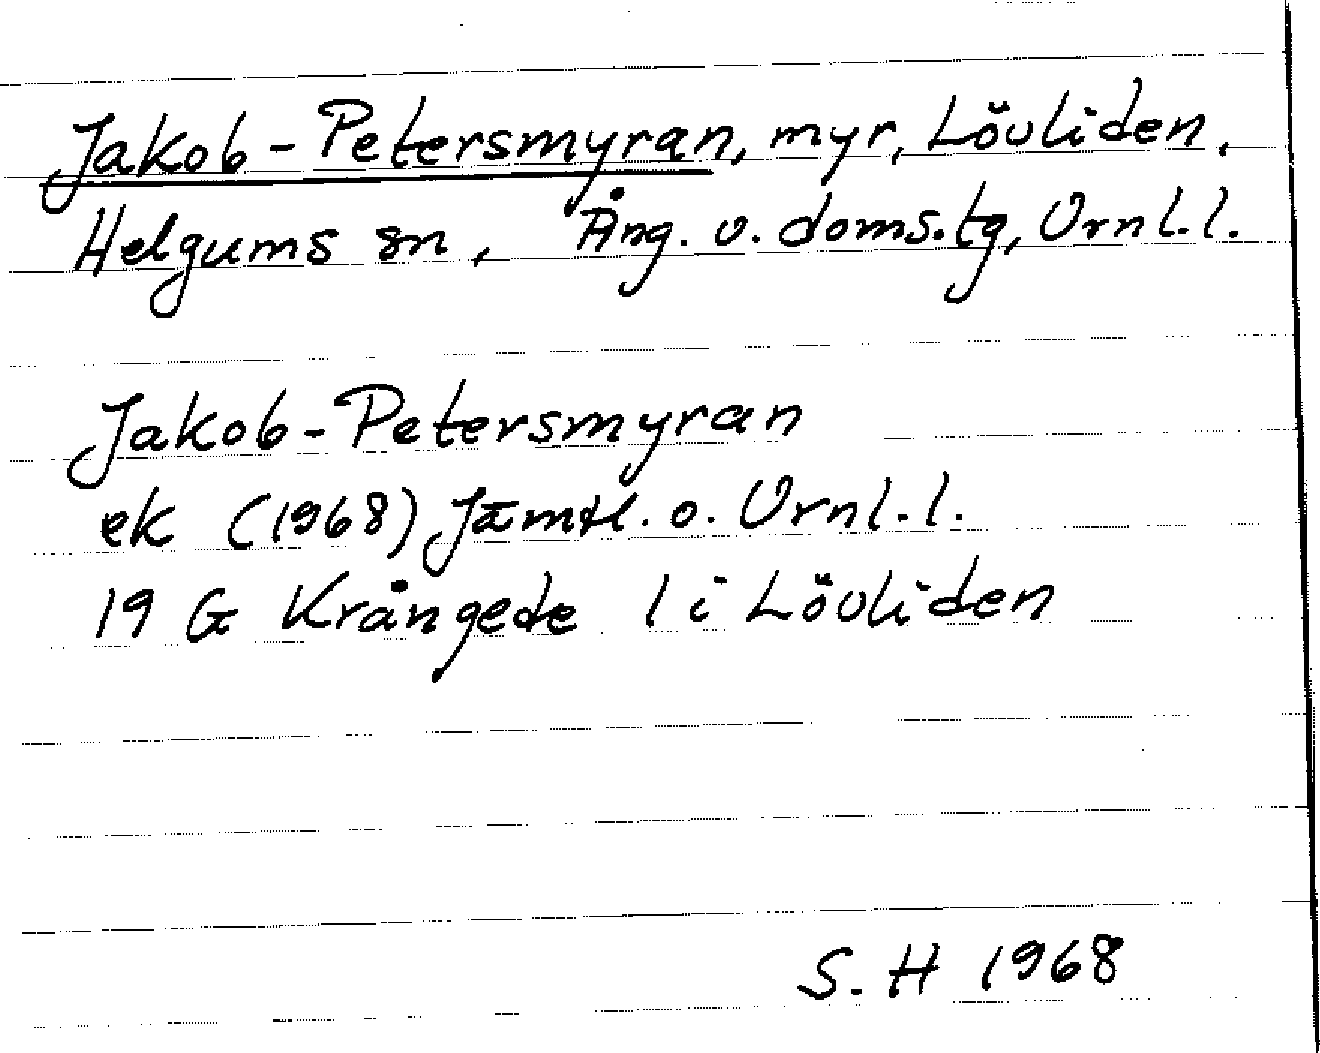 Jakob-Petersmyran, myr, Lövliden,
Helgums sn, Ång. v. doms.tg, Vrnl.l.
Jakob-Petersmyran
ek (1968) Jämtl. o. Vrnl.l.
19 G Krångede l i Lövliden
S. H 1968